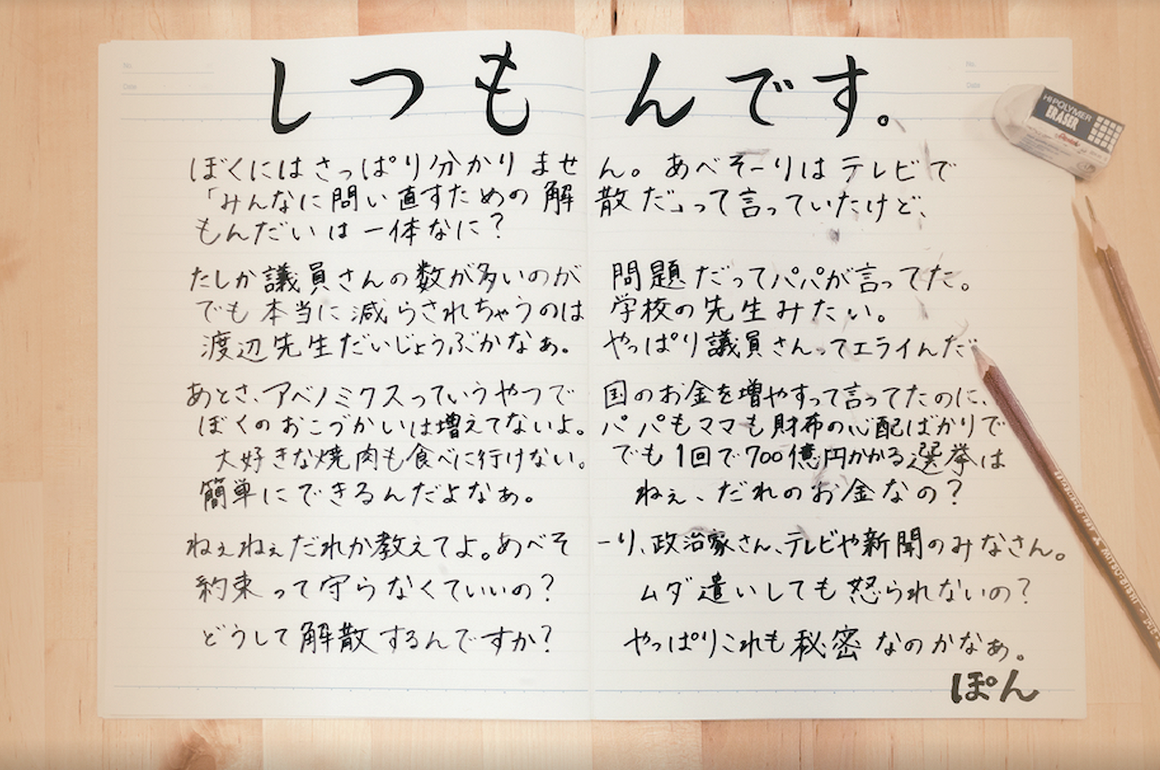 しつもんです。
ぼくにはさっぱり分かりません。あべそーりはテレビで
「みんなに問い直すための解散だ」って言っていたけど、
もんだいは一体なに?
たしか議員さんの数が多いのが問題だってパパが言ってた。
でも本当に減らされちゃうのは学校の先生みたい。
渡辺先生だいじょうぶかなぁ。やっぱり議員さんってエライんだ
あとさ、アベノミクスっていうやつで国のお金を増やすって言ってたのに、
ぼくのおこづかいは増えてないよ。パパもママも財布の心配ばかりで
大好きな焼肉も食べに行けない。でも1回で700億円かかる選挙は
簡単にできるんだよなぁ。ねぇ、だれのお金なの?
ねぇねぇだれか教えてよ。あべそーり、政治家さん、テレビや新聞のみなさん。
約束って守らなくていいの?ムダ遣いしても怒られないの?
どうして解散するんですか?やっぱりこれも秘密なのかなぁ。
ぽん
HI-POLYMER
ERASER
Pentel